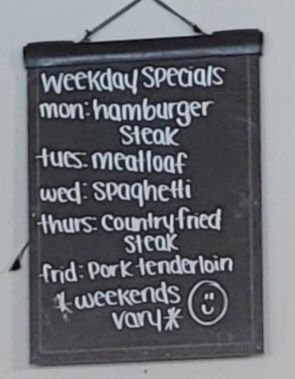 Weekday Specials
mon: hamburger
Steak
tues: meatloaf
wed: spaghetti
thurs: Country fried
Steak
frid: Pork tenderloin
* weekends
vary *